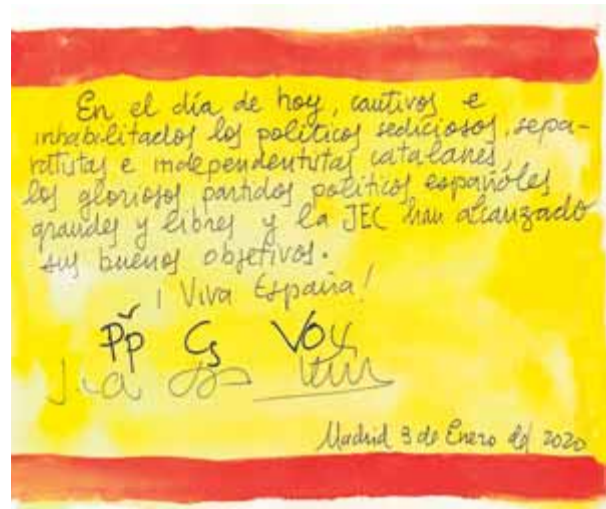 En el día de hoy, cautivos e
inhabilitados los políticos sediciosos, sepa-
ratistas e independentistas catalanes,
los gloriosos partidos políticos españoles
grandes y libres y la JEC han alcanzado
sus buenos objetivos.
¡Viva España!
Pp Cs VOX
Madrid 3 de Enero del 2020